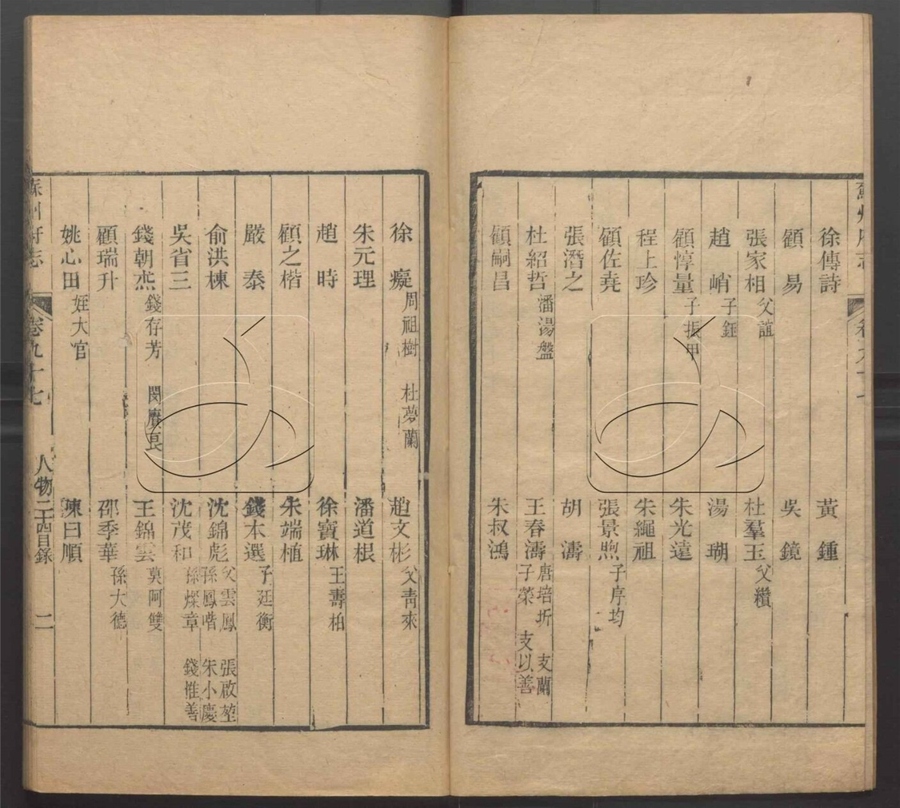 徐傳詩 黃鍾
顧易 吳鏡
張家相 父誼 杜羣玉 父纘
趙峭 子鉅 湯瑚
顧惇量 子振甲 朱光遠
程上珍 朱繩祖
顧佐堯 張景煦 子序均
張潛之 胡濤
杜紹哲 潘湯盤 王春濤 唐培圻 支蘭 子榮 支以善
顧嗣昌 朱叔鴻
徐癡 周祖樹 杜夢蘭 趙文彬 父靑來
朱元理 潘道根
趙時 徐寶琳 王壽柏
顧之楷 朱端植
嚴泰 錢本選 子廷衡
俞洪棟 沈錦彪 父雲鳳 張啟堃 孫鳳喈 朱小慶
吳省三 沈茂和 孫燦章 錢惟善
錢朝烋 錢存芳 閔賡良 王錦雲 莫阿雙
顧瑞升 邵季華 孫大德
姚心田 姪大官 陳日順
蘇州府志 卷九十七 人物二十四目錄 二